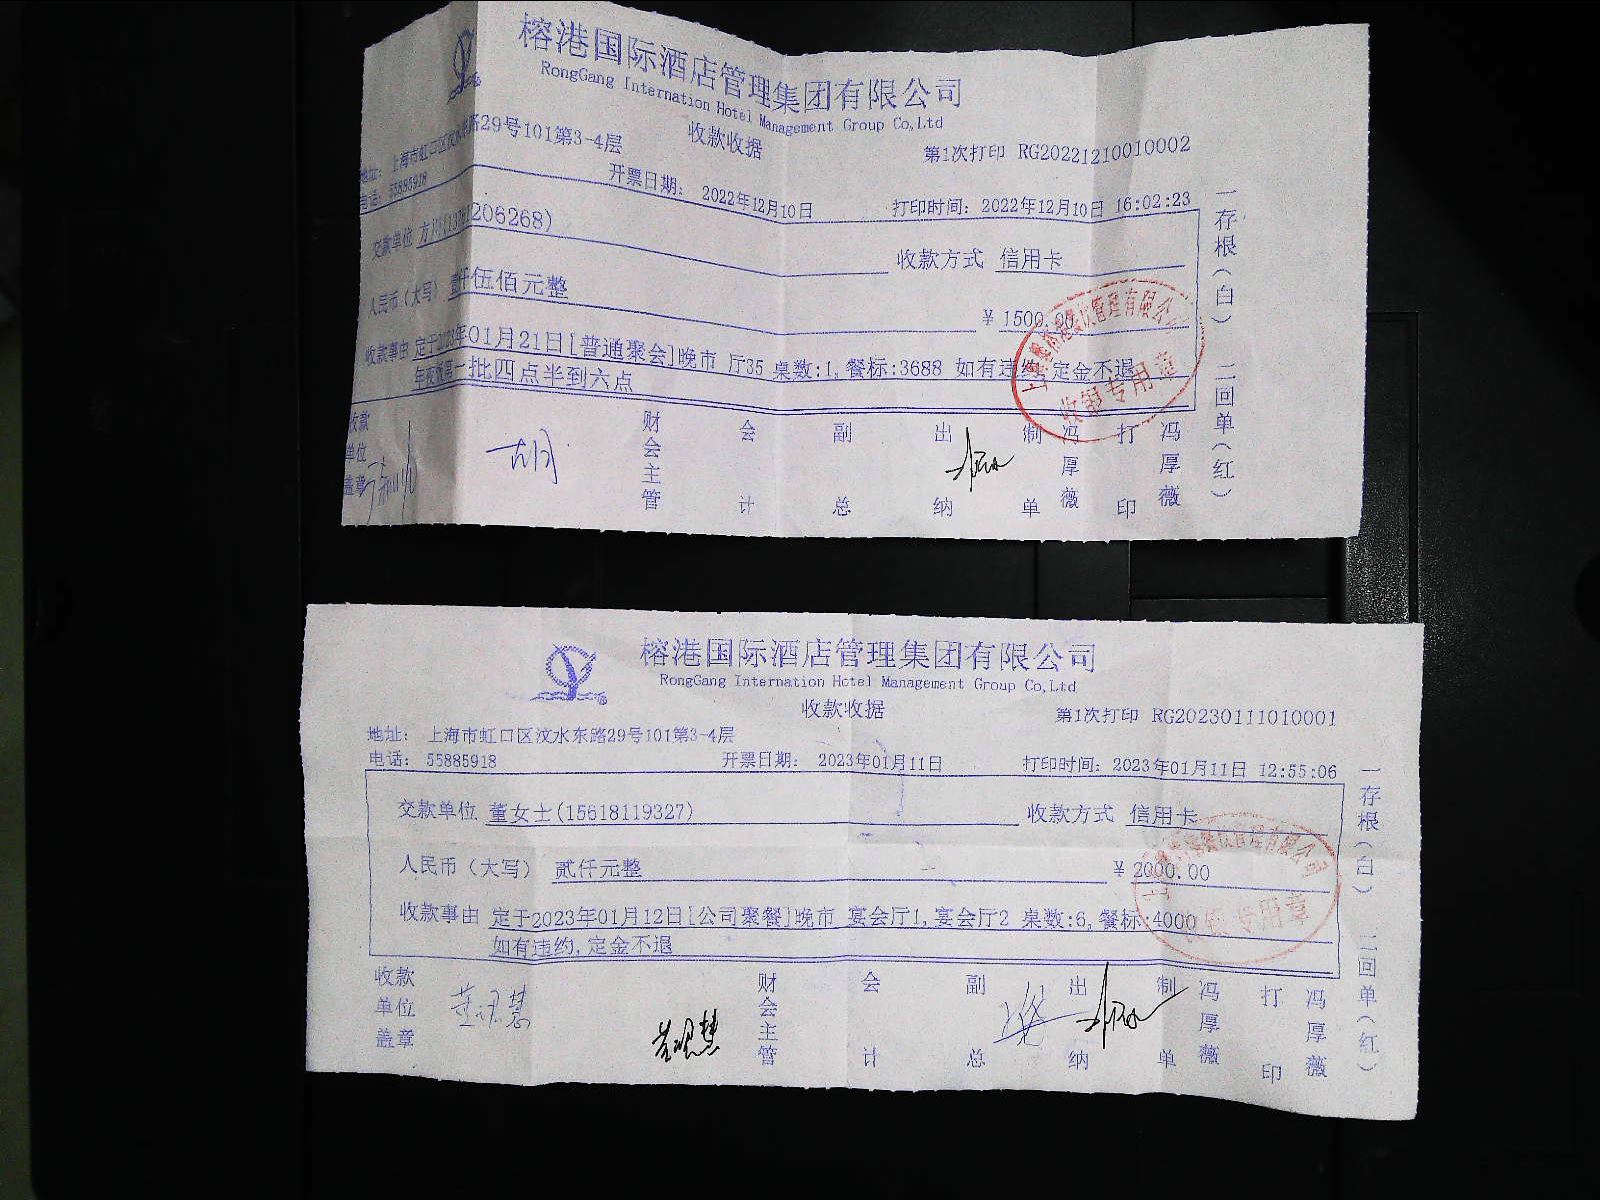 榕港国际酒店管理集团有限公司
RongGang Internation Hotel Management Group Co,Ltd
收款收据
第1次打印 RG20221210010002
地址: 上海市虹口区汶水东路29号101第3-4层
电话: 55885918
开票日期: 2022年12月10日
打印时间: 2022年12月10日 16:02:23
交款单位 206268)
收款方式 信用卡
人民币(大写) 壹仟伍佰元整
¥ 1500.00
收款事由 定于2023年01月21日[普通聚会]晚市 厅35 桌数:1,餐标:3688 如有违约,定金不退
年夜饭第一批四点半到六点
收款单位盖章
财会主管
会计
副总
出纳
制单 冯厚薇
打印 冯厚薇
一存根(白) 二回单(红)
餐饮管理有限公司
收银专用章
榕港国际酒店管理集团有限公司
RongGang Internation Hotel Management Group Co,Ltd
收款收据
第1次打印 RG20230111010001
地址: 上海市虹口区汶水东路29号101第3-4层
电话: 55885918
开票日期: 2023年01月11日
打印时间: 2023年01月11日 12:55:06
交款单位 董女士(15618119327)
收款方式 信用卡
人民币(大写) 贰仟元整
¥ 2000.00
收款事由 定于2023年01月12日[公司聚餐]晚市 宴会厅1,宴会厅2 桌数:6,餐标:4000
如有违约,定金不退
收款单位盖章
财会主管
会计
副总
出纳
制单 冯厚薇
打印 冯厚薇
一存根(白) 二回单(红)
餐饮管理有限公司
收银专用章